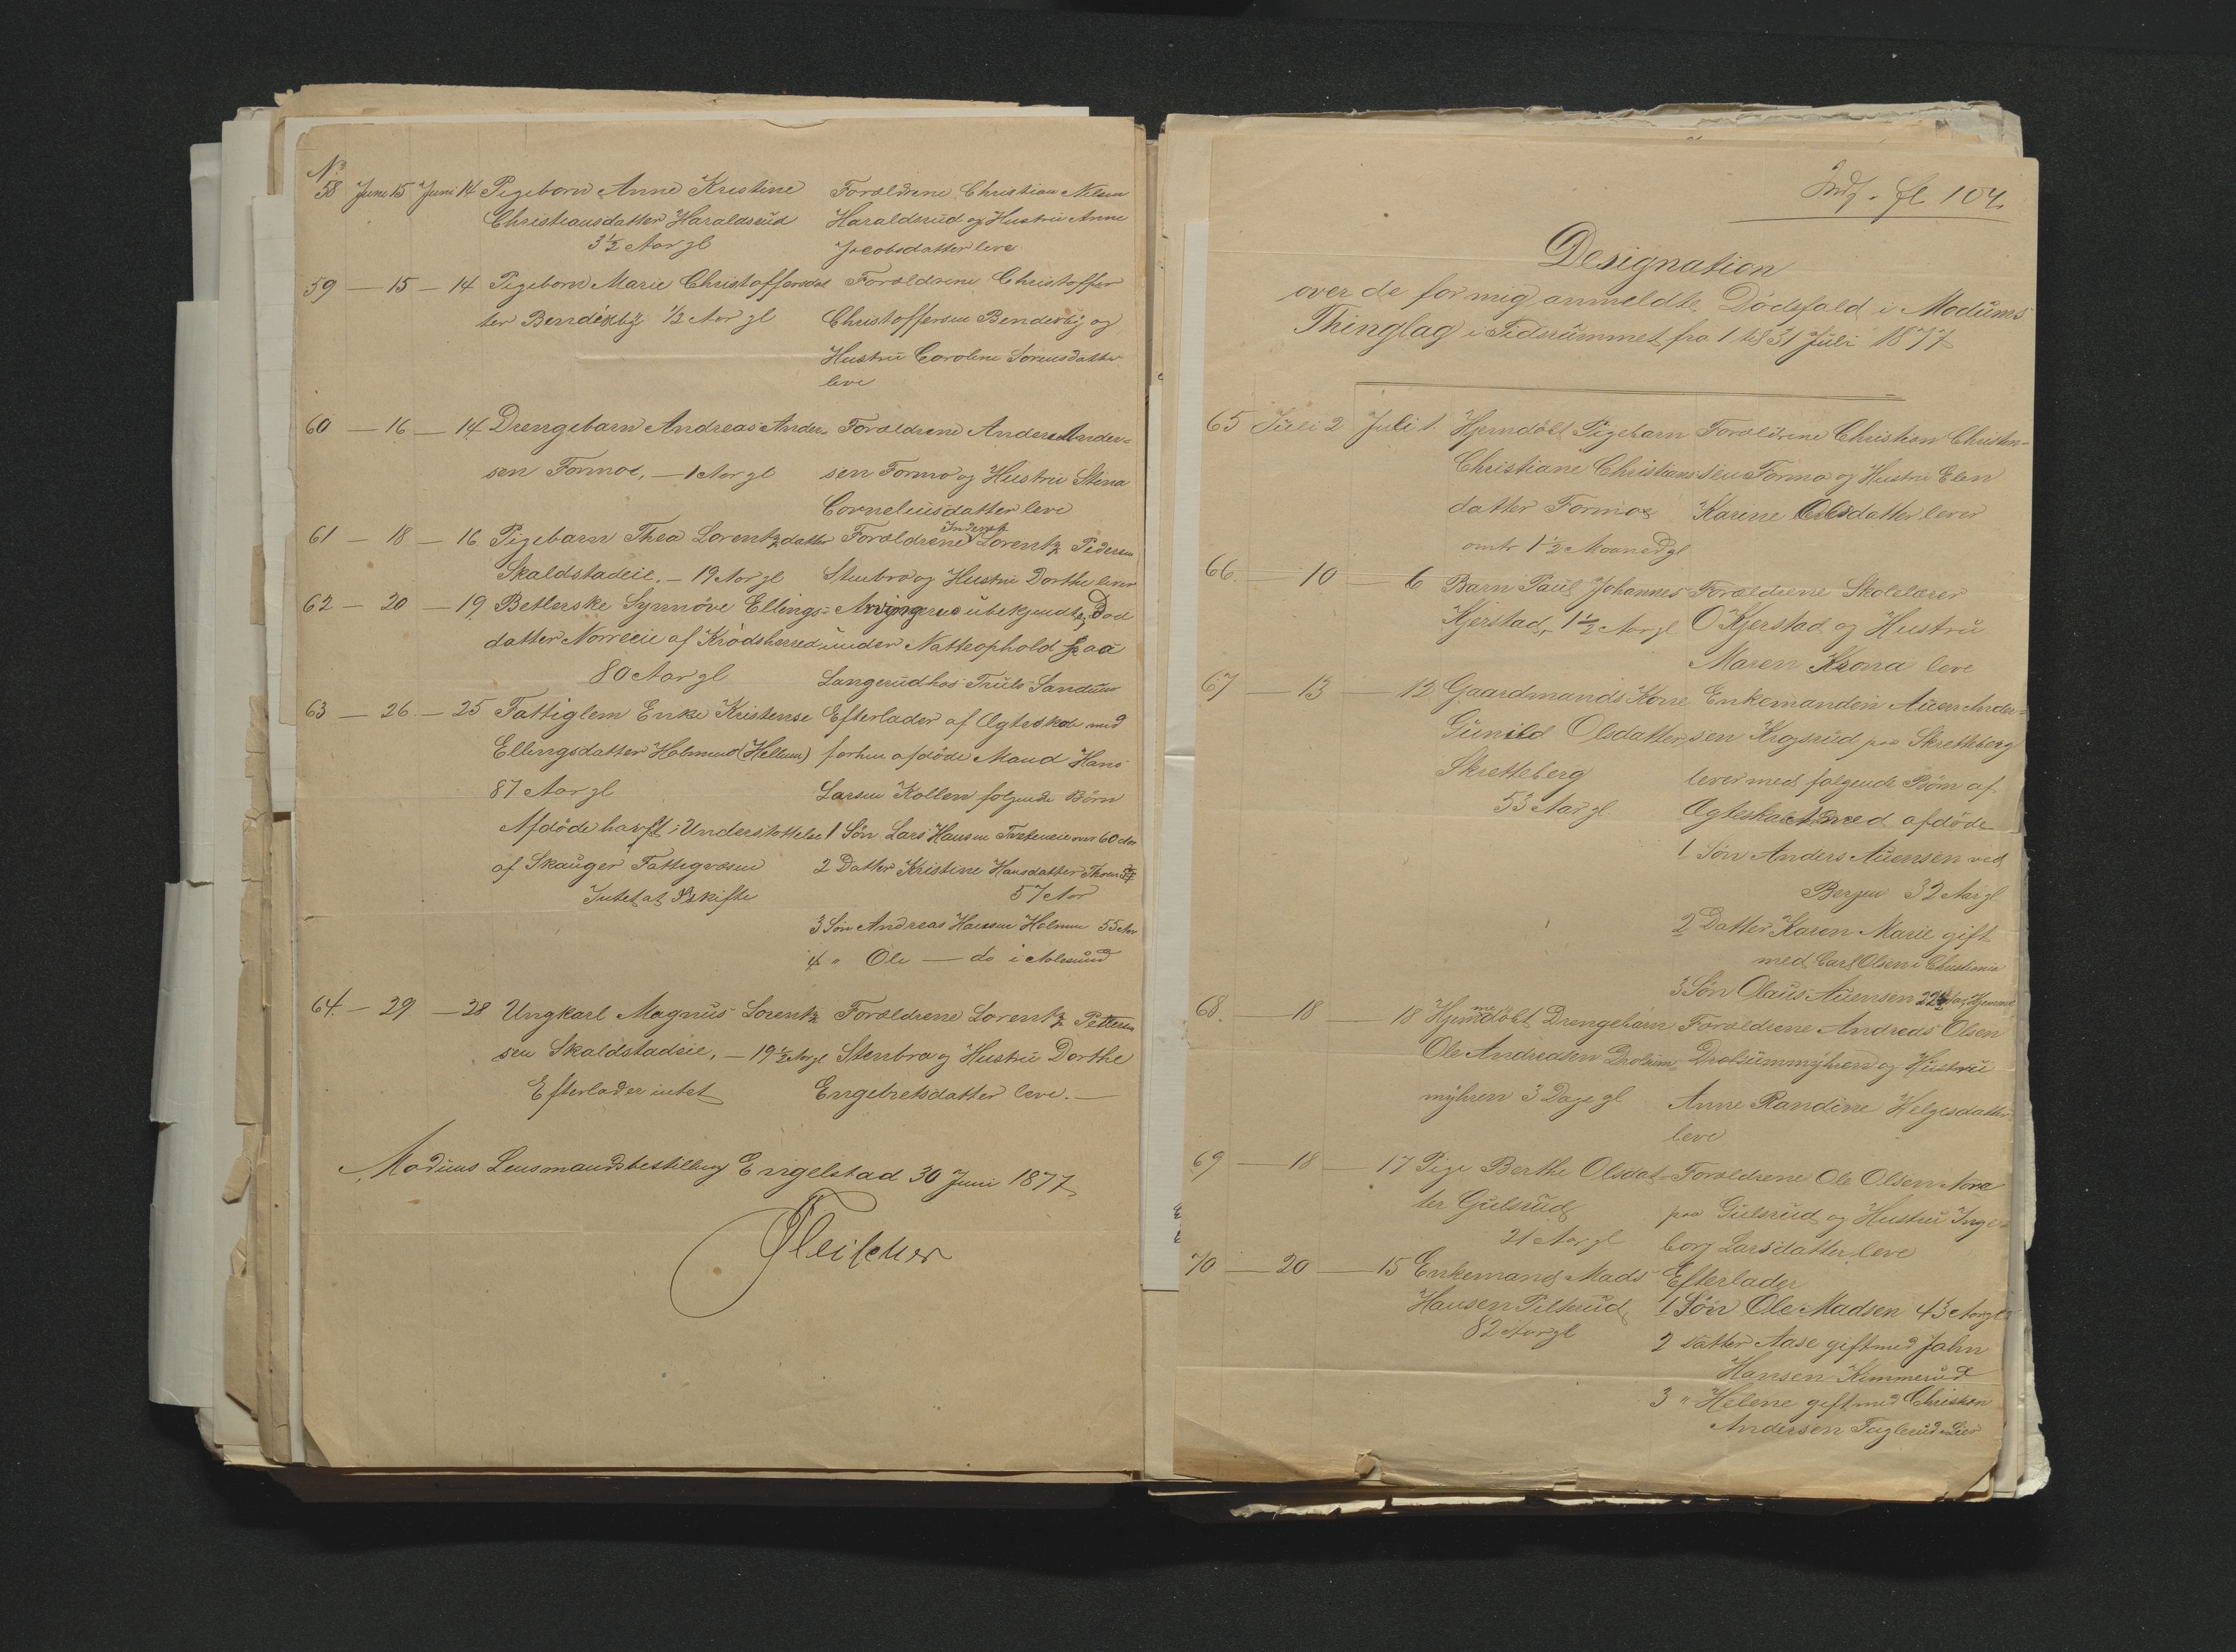 No
58 Juni 15 Juni 14 Pigebarn Anne Kristine Forældrene Christian Nilsen
Christiansdatter Haraldsrud Haraldsrud og Hustru Anne
3½ Aar gl Jacobsdatter leve
59 — 15 — 14 Pigebarn Marie Christoffersdat Forældrene Christoffer
ter Bendixby ½ Aar gl Christoffersen Bendixby og
Hustru Caroline Sørensdatter
leve
60 — 16 — 14 Drengebarn Andreas Ander= Forældrene Anders Ander=
sen Formoe, — 1 Aar gl sen Formo og Hustru Stina
Corneliusdatter leve
61 — 18 — 16 Pigebarn Thea Lorentzdatter Forældrene Inderst Lorentz Pedersen
Skaldstadeie. — 19 Aar gl Stenbro og Hustru Dorthe lever
62 — 20 — 19 Betlerske Synnöve Ellings= Arvingerne ubekjendte, Död
datter Norreeie af Krödsherred, under Natteophold paa
80 Aar gl Langerud hos Truls Sandum
63 — 26 — 25 Fattiglem Enke Kristense Efterlader af Ægteskab med
Ellingsdatter Holmen (Hellum) forhen afdöde Mand Hans
87 Aar gl Larsen Kollen følgende Börn
Afdöde havt i Understöttelse 1 Sön Lars Hansen over 60 Aar
af Skauger Fattigvæsen 2 Datter Kristine Hansdatter
Intet at Skifte 57 Aar
3 Sön Andreas Hansen Holmen 55 Aar
4 " Ole — do i Aalesund
64 — 29 — 28 Ungkarl Magnus Lorentz Forældrene Lorentz Petter
sen Skaldstadeie, — 19½ Aar gl Stenbro og Hustru Dorthe
Efterlader intet Engebretsdatter leve. —
Modums Lensmandsbestilling Engelstad 30 Juni 1877
Fleischer
Indg. fl 104.
Designation
over de for mig anmeldte Dödsfald i Modums
Thinglag i Tidsrummet fra 1 til 31 Juli 1877
65 Juli 2 Juli 1. Hjemdöbt Pigebarn Forældrene Christian Christian=
Christiane Christians sen Formo og Hustru Elen
datter Formoe Karine Olsdatter lever
omtr 1½ Maaned gl
66. — 10 — 6 Barn Paul Johannes Forældrene Skolelærer
Kjerstad, 1½ Aar gl O Kjerstad og Hustru
Maren Krona leve
67 — 13 — 12 Gaardmands Kone Enkemanden Auen Ander=
Gunild Olsdatter sen Krogsrud paa Skretteberg
Skretteberg lever med følgende Börn af
53 Aar gl Ægteskabet med afdöde
1 Sön Anders Auensen ved
Bergen 32 Aar gl
2 Datter Karen Marie gift
med Carl Olsen i Christiania
3 Sön Olaus Auensen 22½ Aar hjemme
68. — 18 — 18 Hjemmedöbt Drengebarn Forældrene Andreas Olsen
Ole Andreasen Drolsum= Drolsummyhren og Hustru
myhren 3 Dage gl Anne Randine Helgesdatter
leve
69 — 18 — 17 Pige Berthe Olsdat= Forældrene Ole Olsen Nore
ter Gulsrud paa Gulsrud og Hustru Inge=
21 Aar gl borg Larsdatter leve
70 — 20 — 15 Enkemand Mads Efterlader
Hansen Pilterud 1 Sön Ole Madsen 43 Aar gl
82 Aar gl 2 Datter Aase gift med John
Hansen Kimmerud
3 " Helene gift med Christen
Andersen Fuglerud i Lier